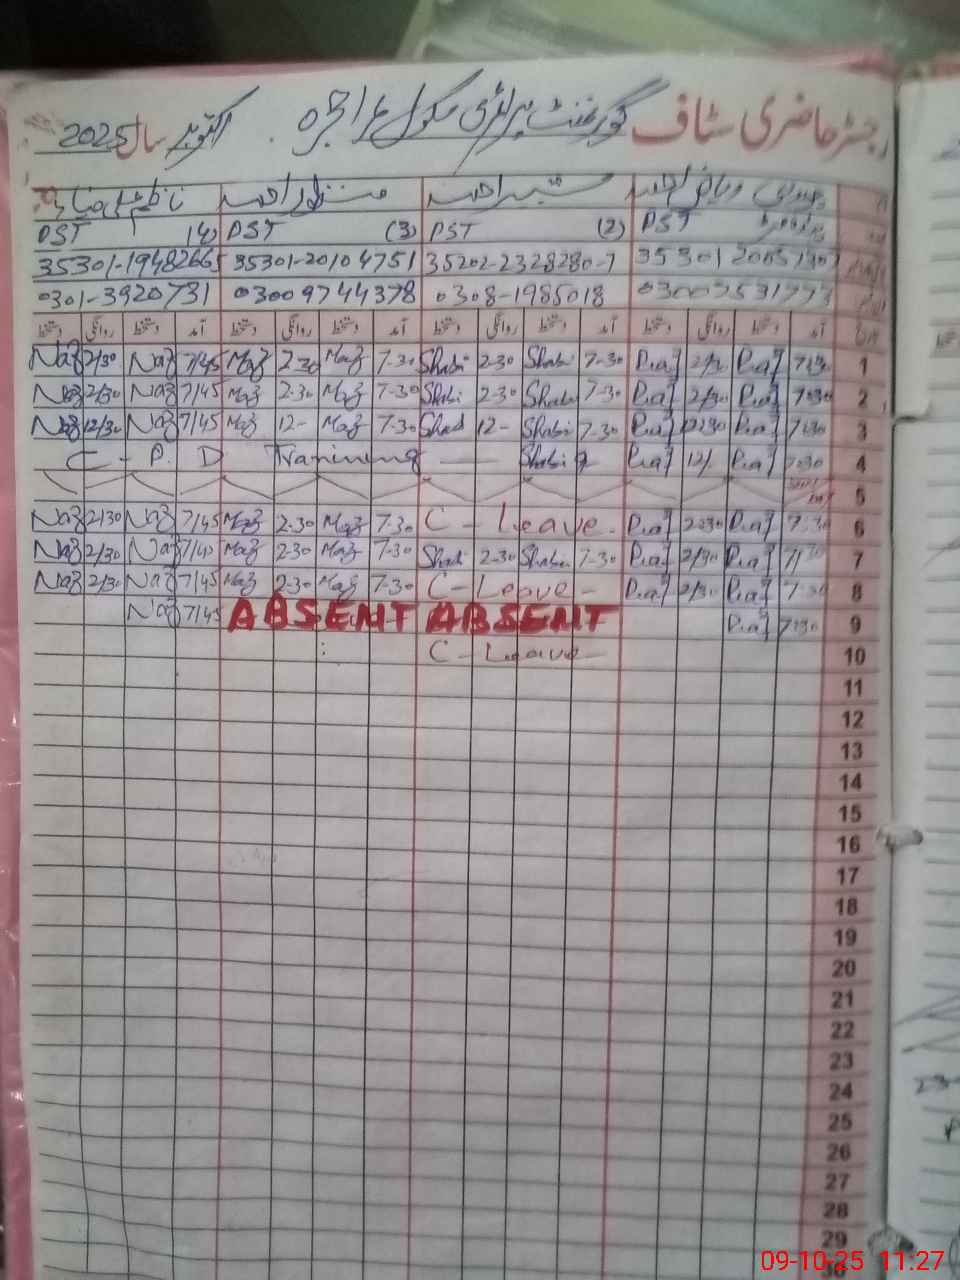 رجسٹر حاضری سٹاف گورنمنٹ پرائمری سکول اکتوبر سال 2025
ریاض احمد شبیر احمد منظور احمد
PST PST (2) PST (3) PST (4)
35202-2328280-7 35301-20104751 35301-19482665
0308-1985018 03009744378 0301-3920731
آمد دستخط روانگی دستخط آمد دستخط روانگی دستخط آمد دستخط روانگی دستخط آمد دستخط روانگی دستخط
Naz 2/30 Naz 7/45 Maz 2-30 Maz 7-30 Shabi 2-30 Shabi 7-30 Riaz 2/30 Riaz 7:30 1
Naz 2/30 Naz 7/45 Maz 2-30 Maz 7-30 Shabi 2-30 Shabi 7-30 Riaz 2/30 Riaz 7:30 2
Naz 12/30 Naz 7/45 Maz 12- Maz 7-30 Shabi 12- Shabi 7-30 Riaz 12:30 Riaz 7:30 3
C - P. D Training — Shabi Riaz 12/ Riaz 7:30 4
5
Naz 2/30 Naz 7/45 Maz 2-30 Maz 7-30 C - Leave - Riaz 2:30 Riaz 7:30 6
Naz 2/30 Naz 7/45 Maz 2-30 Maz 7-30 Shabi 2-30 Shabi 7-30 Riaz 2/30 Riaz 7
Naz 2/30 Naz 7/45 Maz 2-30 Maz 7-30 C - Leave - Riaz 2/30 Riaz 7:30 8
Naz 7/45 ABSENT ABSENT Riaz 7:30 9
C - Leave - 10
11
12
13
14
15
16
17
18
19
20
21
22
23
24
25
26
27
28
29
09-10-25 11:27